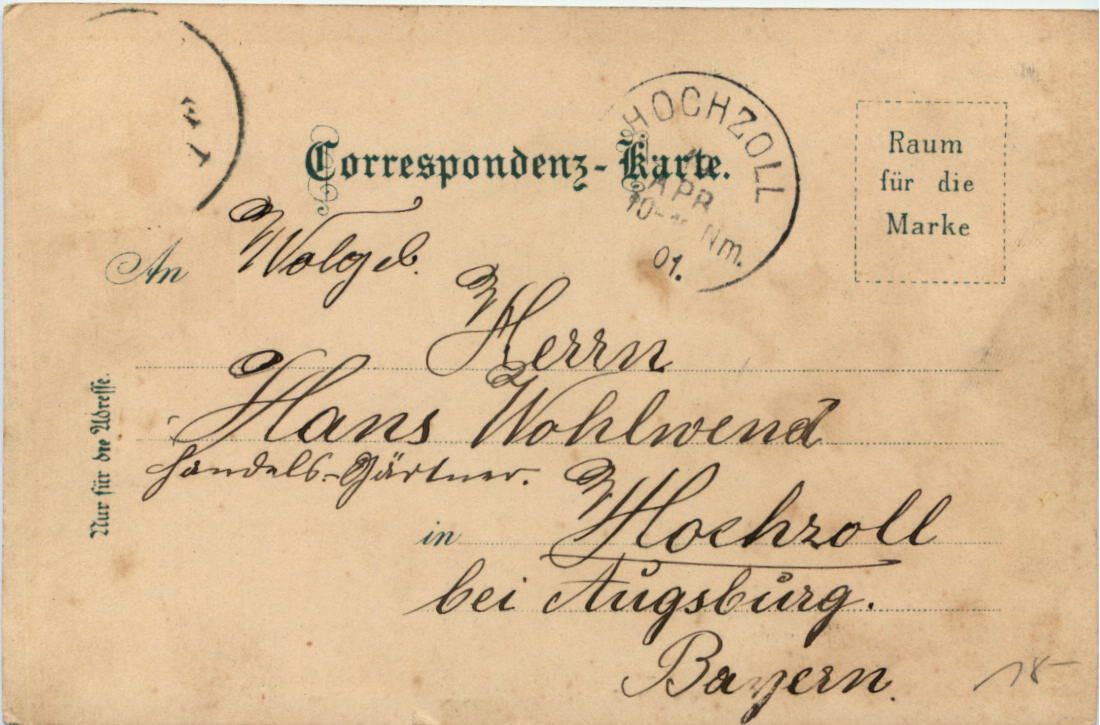 Correspondenz-Karte.
HOCHZOLL
APR
Nm.
01.
Raum
für die
Marke
An Wolgeb.
Herrn
Hans Wohlwend
Handels-Gärtner.
in Hochzoll
bei Augsburg.
Bayern.
Nur für die Adresse.
18-